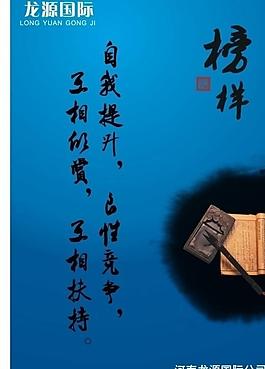 龙源国际
LONG YUAN GONG JI
榜样
自我提升，良性竞争，
互相欣赏，互相扶持。
河南龙源国际公司